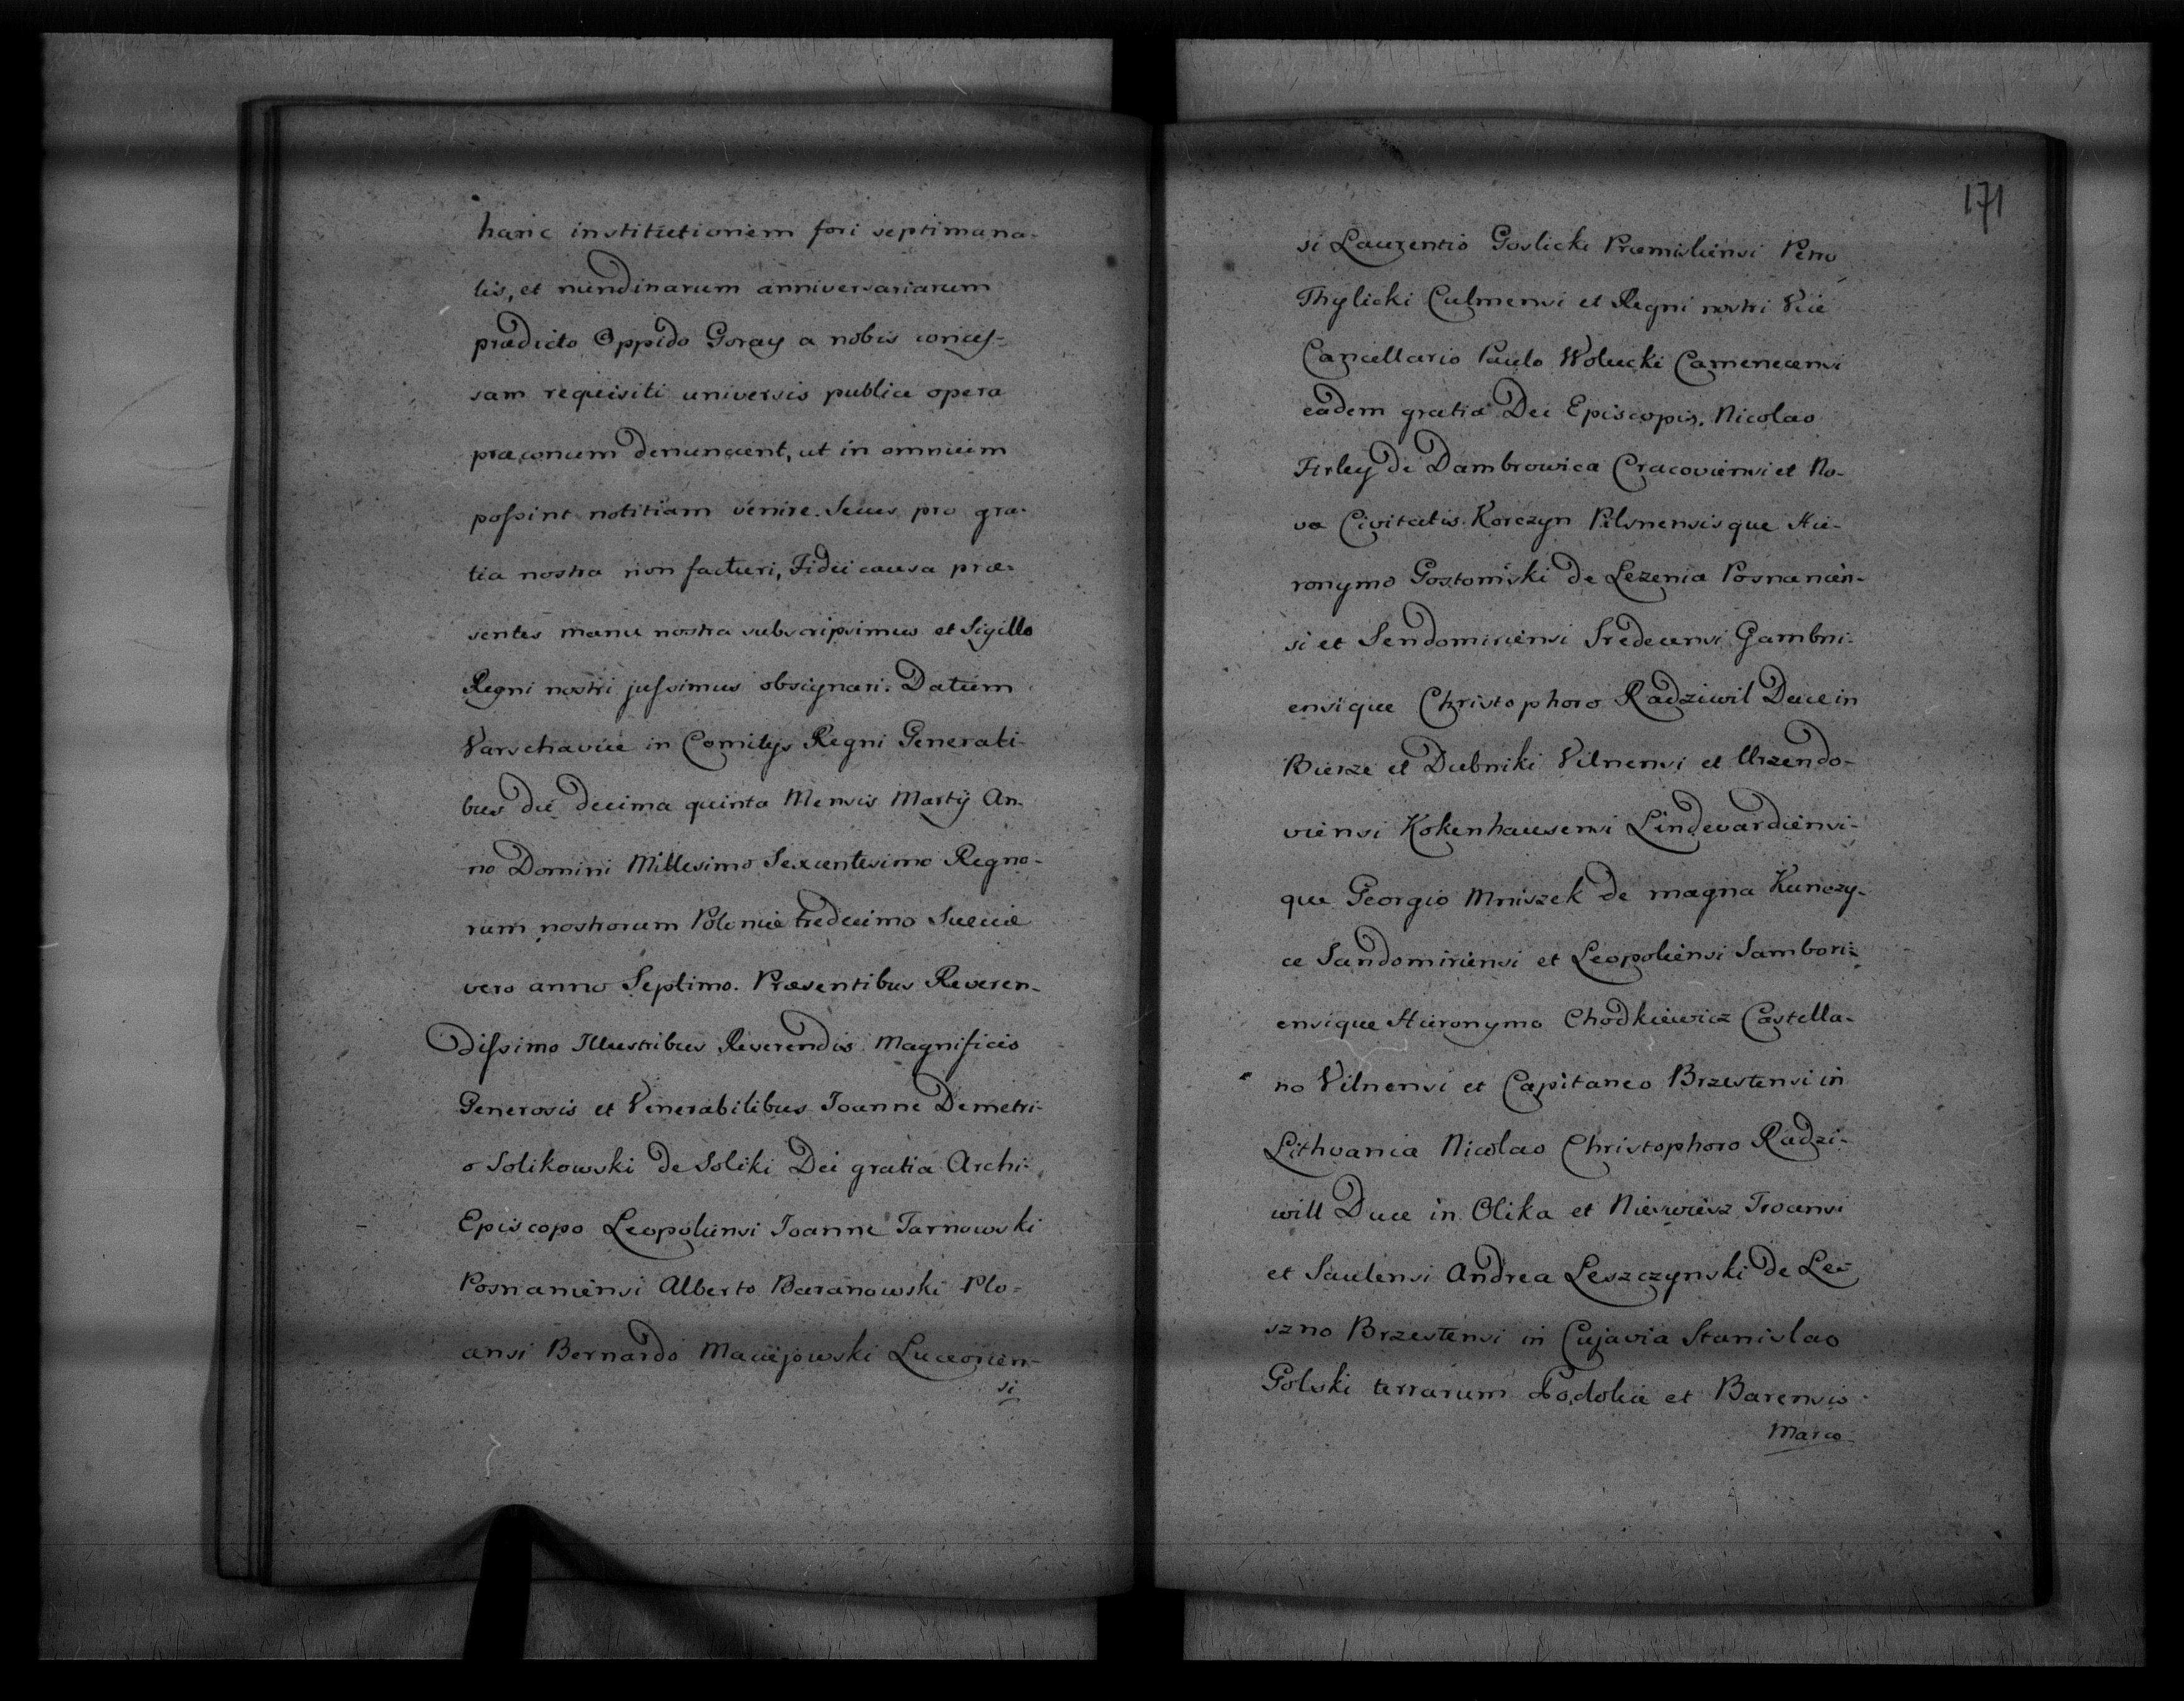 hanc institutionem fori septimana-
lis, et nundinarum anniversariarum
prædicto Oppido Goray a nobis conceſ-
sam requisiti universis publica opera
præconum denuncient, ut in omnium
poſsint notitiam venire. Secus pro gra-
tia nostra non facturi, Fidei causa præ-
sentes manu nostra subscripsimus et Sigillo
Regni nostri juſsimus obsignari. Datum
Varschaviæ in Comitijs Regni Generali-
bus die decima quinta Mensis Martij An-
no Domini Millesimo Sexcentesimo Regno-
rum nostrorum Poloniæ tredecimo Sueciæ
vero anno Septimo. Præsentibus Reveren-
diſsimo Illustribus Reverendis Magnificis
Generosis et Venerabilibus Joanne Demetri-
o Solikowski de Soliki Dei gratia Archi-
Episcopo Leopoliensi Joanne Tarnowski
Posnaniensi Alberto Baranowski Plo-
censi Bernardo Maciejowski Luceorien-
si
171
si Laurentio Goslicki Præmisliensi Petro
Thylicki Culmensi et Regni nostri Vice
Cancellario Paulo Wolucki Camenecensi
eadem gratia Dei Episcopis. Nicolao
Firley de Dambrowica Cracoviensi et No-
va Civitatis Korczyn Pilsnensisque Hie-
ronymo Gostomski de Lezenia Posnanien-
si et Sendomiriensi Sredecensi Gambni-
ensique Christophoro Radziwil Duce in
Bierze et Dubniki Vilnensi et Urzendo-
viensi Kokenhausensi Lindevardiensi-
que Georgio Mniszek de magna Kunczy-
ce Sandomiriensi et Leopoliensi Sambori-
ensique Hieronymo Chodkiewicz Castella-
no Vilnensi et Capitaneo Brzestensi in
Lithvania Nicolao Christophoro Radzi-
will Duce in Olika et Nieswiesz Trocensi
et Saulensi Andrea Leszczynski de Le-
szno Brzestensi in Cujavia Stanislao
Golski terrarum Podoliæ et Barensis
Marco-